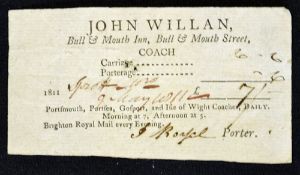 JOHN WILLAN,
Bull & Mouth Inn, Bull & Mouth Street,
COACH
Carriage............ 6 - 6
Porterage............ - 6
1811
9 May 1811 £ 7/-
Portsmouth, Portsea, Gosport, and Isle of Wight Coaches, DAILY.
Morning at 7, Afternoon at 5.
Brighton Royal Mail every Evening.
Porter.